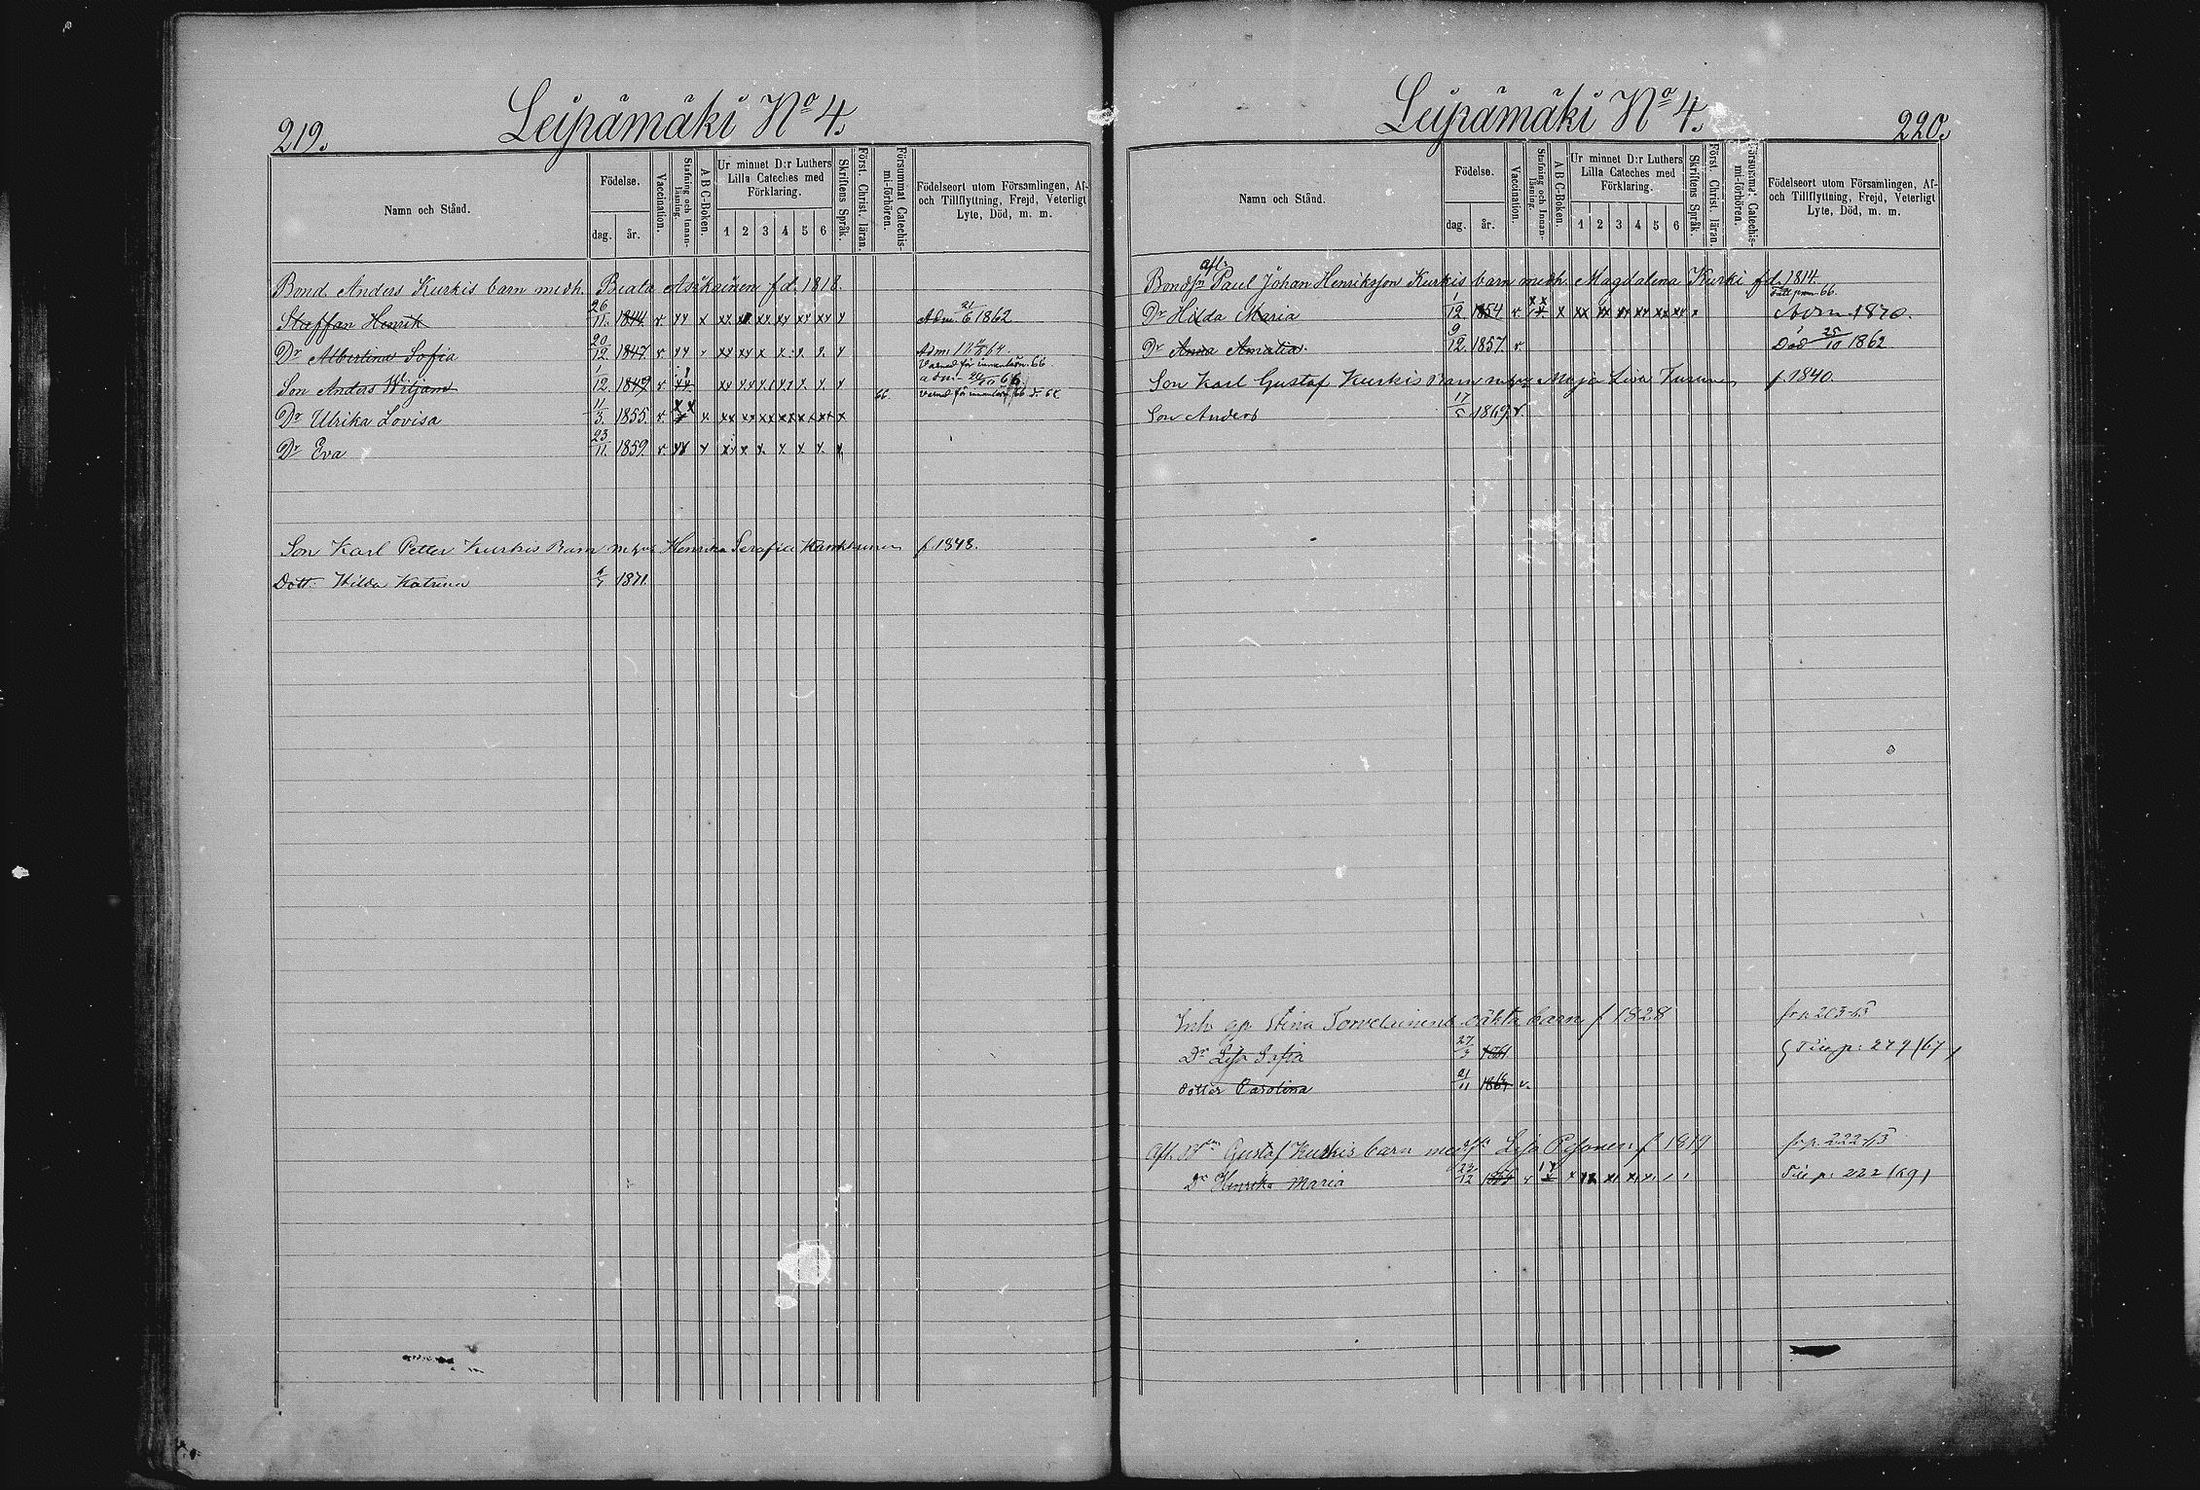 219.
Leipämäki No 4.
Namn och Stånd.
Födelse.
dag. år.
Vaccination.
Stafning och Innanläsning.
A B C-Boken.
Ur minnet D:r Luthers Lilla Cateches med Förklaring.
1 2 3 4 5 6
Skriftens Språk.
Först. Christ. läran.
Försummat Catechismi-förhören.
Födelseort utom Församlingen, Af- och Tillflyttning, Frejd, Veterligt Lyte, Död, m. m.
Bond. Anders Kurkis barn medh. Beata Asikainen fd. 1818.
Staffan Henrik 26/11. 1844. v xx x xx xx xx xx xx x Adm. 21/6 1862
Dr Albertina Sofia 20/12 1847 v xx xx xx x x x x x Adm.
Varned för innanläsn. 66.
Son Anders Wiljam 1/12. 1849 v
66.
Dr Ulrika Lovisa 11/3. 1855. v x x xx xx xx xx xx xx x
Dr Eva 23/11. 1859. v xx x xx x x x x x x
Son Karl Petter Kurkis Barn m hu Henrika Serafia f. 1848.
Dott. Hilda Katrina 1871.
Leipämäki No 4.
220.
Namn och Stånd.
Födelse.
dag. år.
Vaccination.
Stafning och Innanläsning.
A B C-Boken.
Ur minnet D:r Luthers Lilla Cateches med Förklaring.
1 2 3 4 5 6
Skriftens Språk.
Först. Christ. läran.
Försummat Catechismi-förhören.
Födelseort utom Församlingen, Af- och Tillflyttning, Frejd, Veterligt Lyte, Död, m. m.
afl.
Bondsn Paul Johan Henriksson Kurkis barn medh. Magdalena Kurki fd. 1814.
66.
Dr Hilda Maria 1/12. 1854 v x xx xx xx xx xx xx x Adm 1870.
Dr Anna Amalia. 9/12. 1857. v Död 25/10 1862
Son Karl Gustaf Kurkis Barn m hu Maja Lisa f. 1840.
Son Anders 17/5 1869. v
Inh. Stina Torvelainens oäkta barn f 1828 fr p 203-65
Dr Lisa Sofia 27/3 1861 Till p. 279/67
dotter Carolina 21/11 v.
Afl. Gustaf Kurkis barn med Lisa Pesonen f 1819 fr p. 222-65
Dr Henrika Maria 22/12 v Till p. 222/69